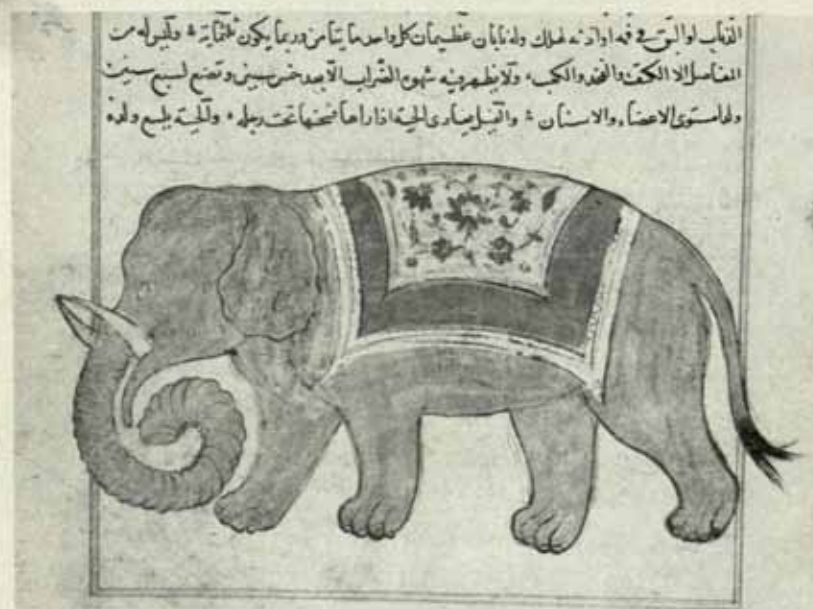 الذباب او البق في فيه او اذنه لهلاك وله نابان عظيمان كل واحد مايتا من وربما يكون ثلثماية وليس له من
المفاصل الا الكتف والفخد والكعب ولا يظهر فيه شهوة الضراب الا بعد خمس سنين وتضع لسبع سنين
ولدا مستوى الاعضاء والاسنان والفيل يعادى الحية اذا راها فسخها تحت رجله والحية يلسع ولده